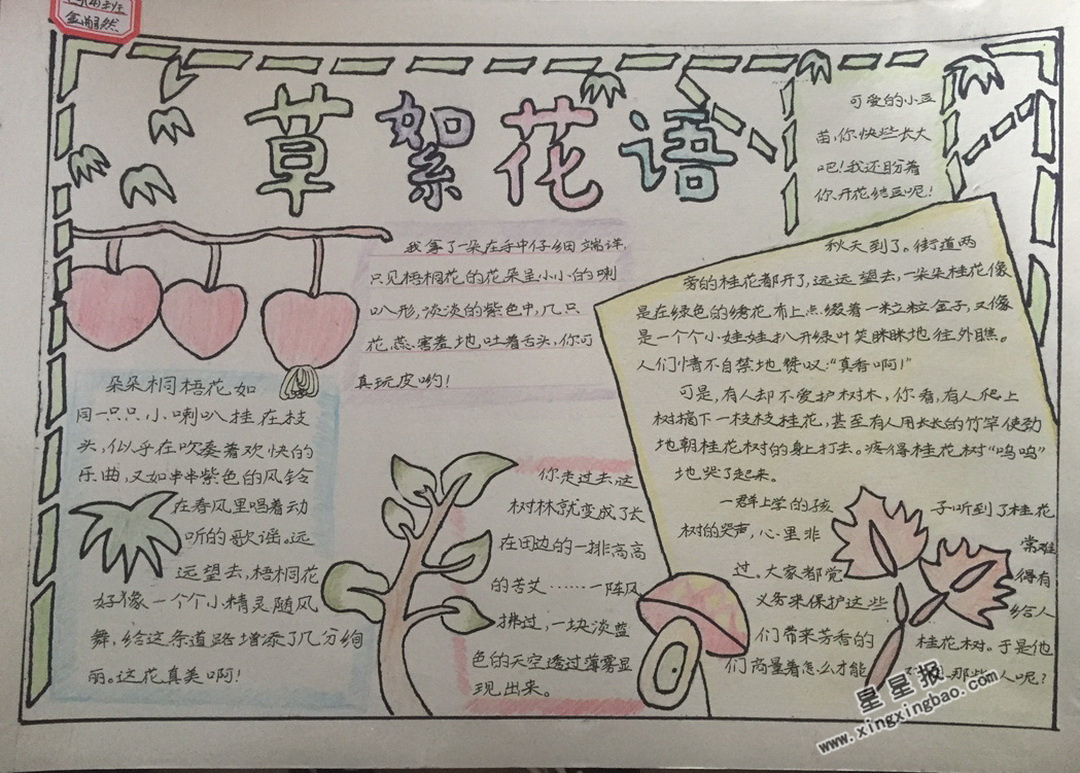 草絮花语
可爱的小豆
苗,你快些长大
吧!我还盼着
你开花结豆呢!
我拿了一朵在手中仔细端详,
只见梧桐花的花朵呈小小的喇
叭形,淡淡的紫色中,几只
花蕊害羞地吐着舌头,你可
真玩皮哟!
朵朵桐梧花,如
同一只只小喇叭挂在枝
头,似乎在吹奏着欢快的
乐曲,又如串串紫色的风铃
在春风里唱着动
听的歌谣。远
远望去,梧桐花
好像一个个小精灵随风
舞,给这条道路增添了几分绚
丽。这花真美啊!
你走过去,这
树林就变成了长
在田边的一排高高
的苦艾……一阵风
拂过,一块淡蓝
色的天空透过薄雾显
现出来。
秋天到了。街道两
旁的桂花都开了,远远望去,一朵朵桂花像
是在绿色的绣花布上点缀着一粒粒金子,又像
是一个个小娃娃扒开绿叶笑眯眯地往外瞧。
人们情不自禁地赞叹:“真香啊!”
可是,有人却不爱护树木,你看,有人爬上
树摘下一枝枝桂花,甚至有人用长长的竹竿使劲
地朝桂花树的身上打去。疼得桂花树“呜呜”
地哭了起来。
一群上学的孩子听到了桂花
树的哭声,心里非常难
过。大家都觉得有
义务来保护这些给人
们带来芳香的桂花树。于是他
们商量着怎么才能人呢?
星星报
www.xingxingbao.com